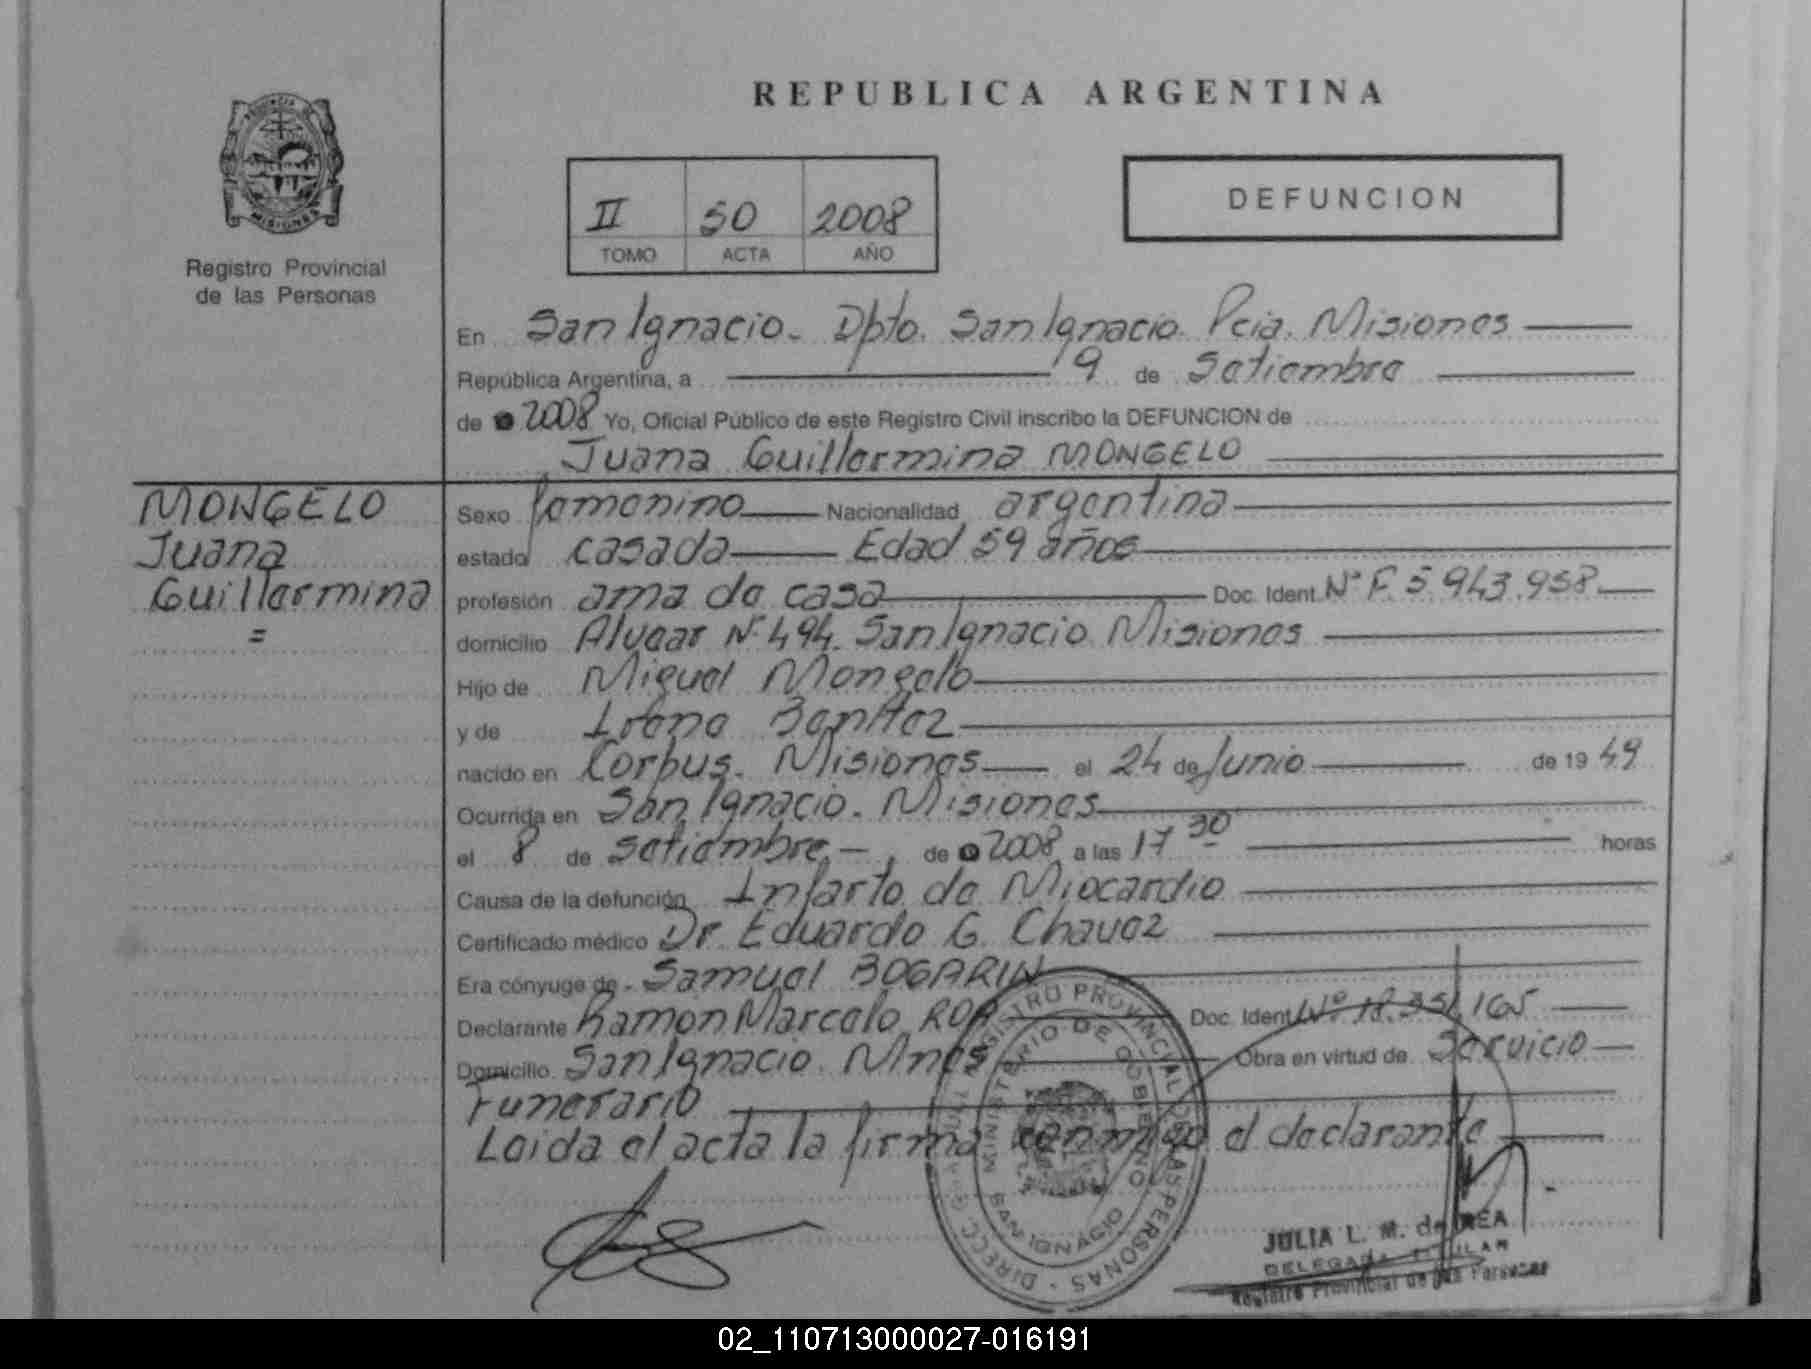 REPUBLICA ARGENTINA
PROVINCIA DE
MISIONES
Registro Provincial
de las Personas
II 50 2008
TOMO ACTA AÑO
DEFUNCION
En San Ignacio. Dpto. San Ignacio. Pcia. Misiones
República Argentina, a 9 de Setiembre
de 2008 Yo, Oficial Público de este Registro Civil inscribo la DEFUNCION de
Juana Guillermina MONGELO
MONGELO
Juana
Guillermina
=
Sexo femenino Nacionalidad argentina
estado casada Edad 59 años
profesión ama de casa Doc. Ident. Nº F. 5.943.958
domicilio Alvear Nº 494. San Ignacio Misiones
Hijo de Miguel Mongelo
y de Irene Benitez
nacido en Corpus. Misiones el 24 de Junio de 1949
Ocurrida en San Ignacio. Misiones
el 8 de Setiembre, de 2008 a las 17 30 horas
Causa de la defunción Infarto de Miocardio
Certificado médico Dr. Eduardo G. Chavez
Era cónyuge de Samuel BOGARIN
Declarante Ramon Marcelo ROA Doc. Ident. Nº 18.351.165
Domicilio San Ignacio. Mnes Obra en virtud de Servicio
Funerario
Leida el acta la firma conmigo el declarante
REGISTRO PROVINCIAL DE LAS PERSONAS - DIRECC. GRAL. DEL
MINISTERIO DE GOBIERNO
SAN IGNACIO
JULIA L. M. de REA
DELEGADA TITULAR
Registro Provincial de las Personas
02_110713000027-016191